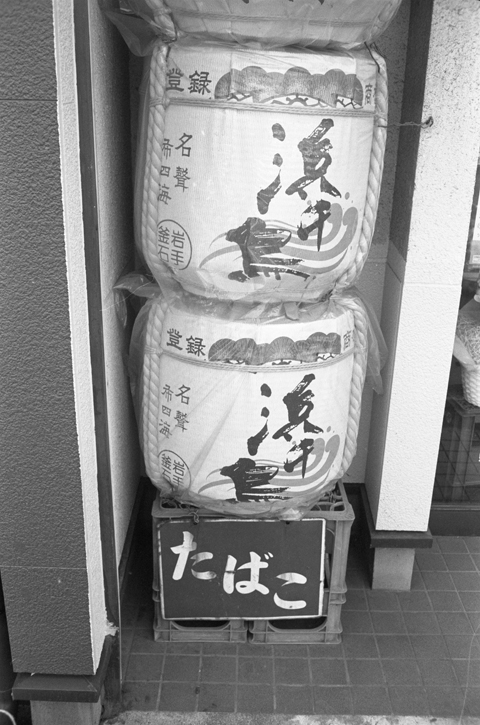 登録 商
浜千鳥
名聲
布四海
岩手
釜石
登録 商
浜千鳥
名聲
布四海
岩手
釜石
たばこ